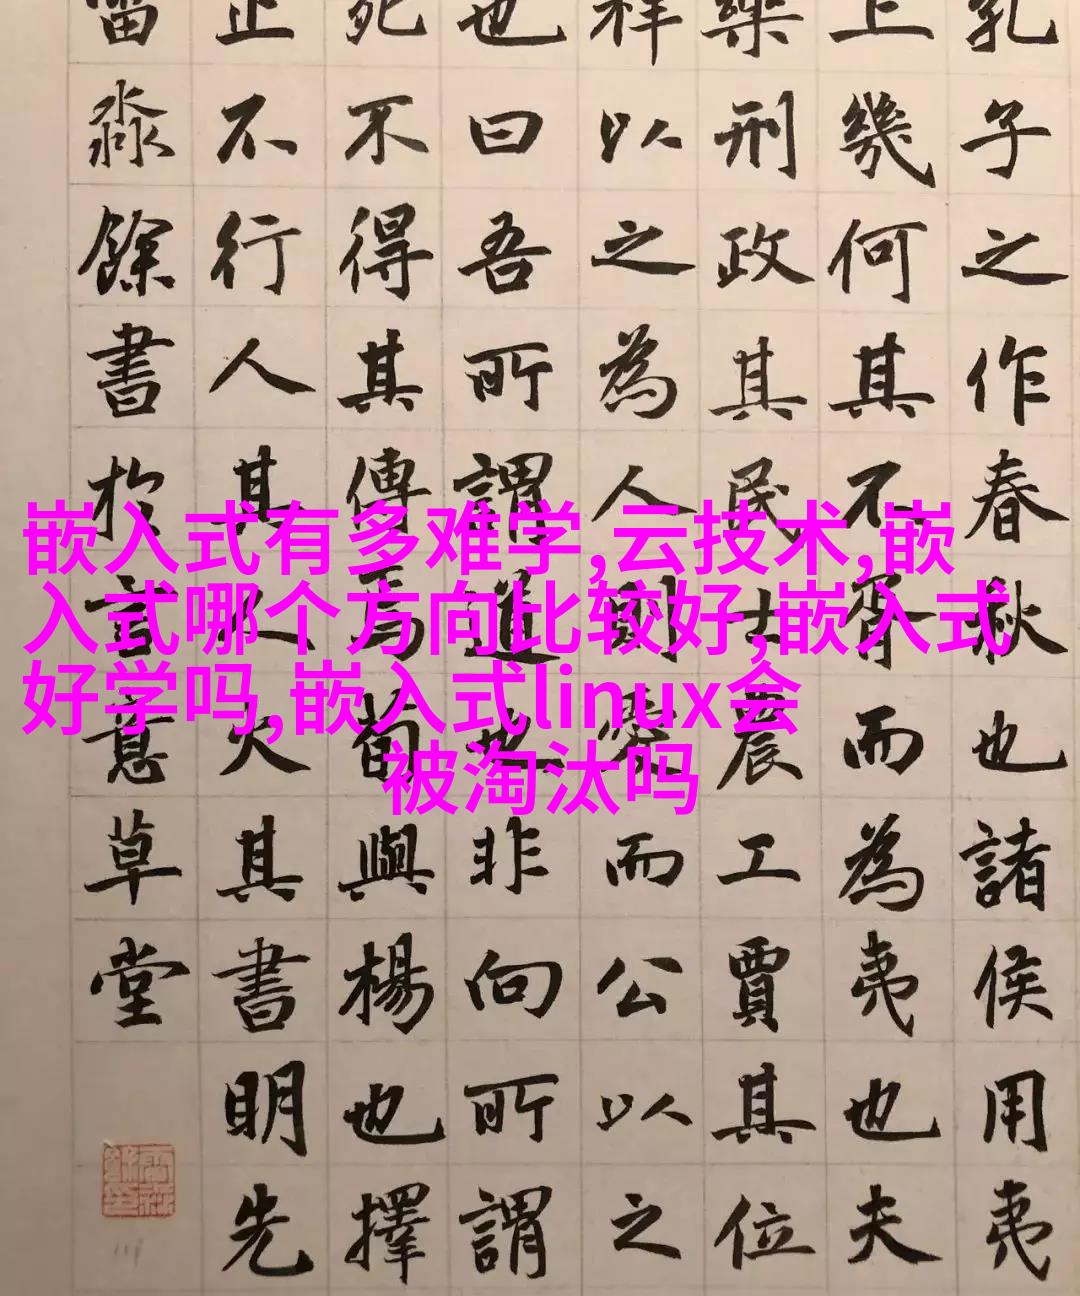 孔子之作春秋也諸侯用夷
上幾何其不胥而為夷也夫
樂刑政其民士農工賈其位
祥以之為人則愛而公以之
也曰吾所謂道也非向所謂
死不得其傳焉荀與楊也擇
止不行人其人火其書明先
淼餘書於言意草堂
嵌入式有多难学,云技术,嵌
入式哪个方向比较好,嵌入式
好学吗,嵌入式linux会
被淘汰吗